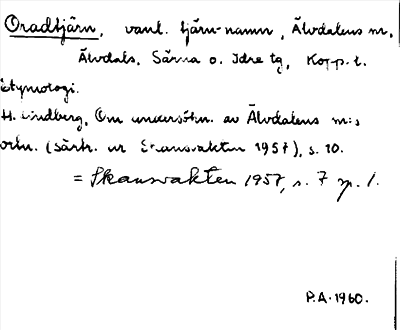 Oradtjärn, vanl. tjärn-namn, Älvdalens m.,
Älvdals, Särna o. Idre tg, Kopp. l.
Etymologi.
H. Lindberg, Om undersökn. av Älvdalens m:s
ortn. (särtr. ur Skansvakten 1957), s. 10.
= Skansvakten 1957, s. 7 sp. 1.
P.A. 1960.